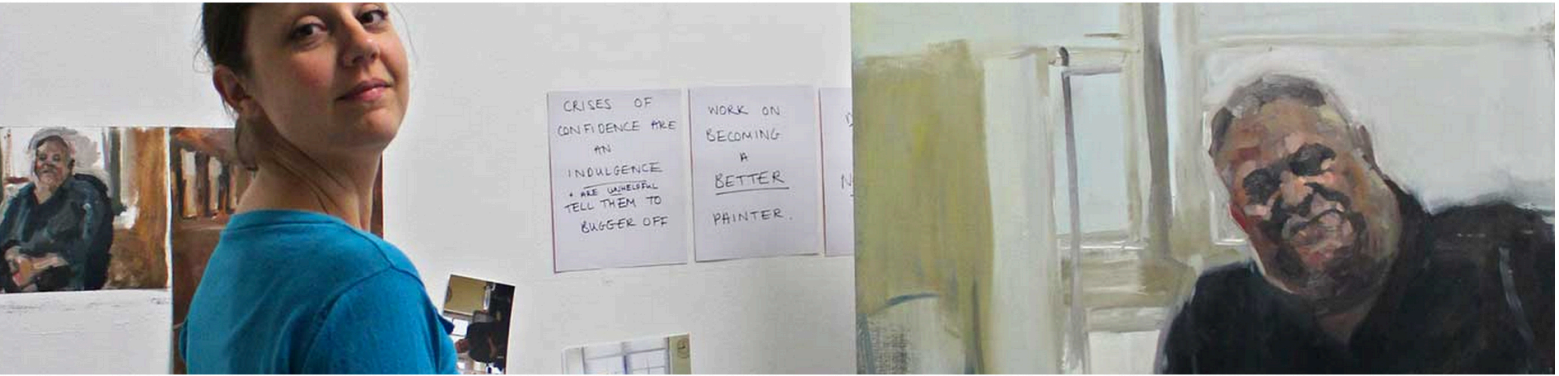 CRISES OF
CONFIDENCE ARE
AN
INDULGENCE
+ ARE UNHELPFUL
TELL THEM TO
BUGGER OFF
WORK ON
BECOMING
A
BETTER
PAINTER.